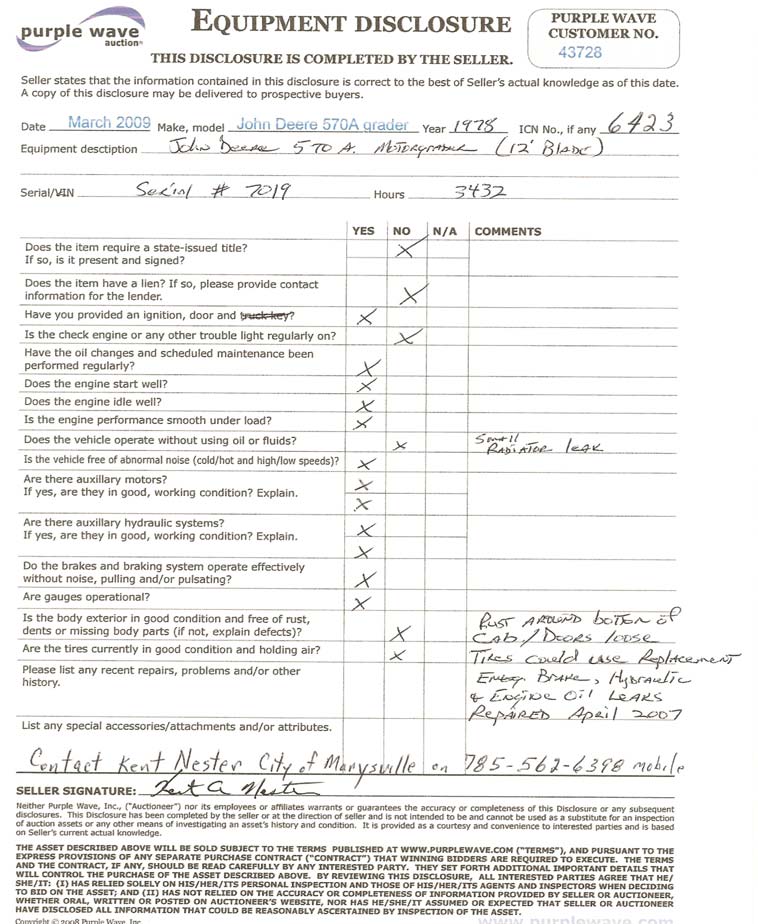 purple wave
auction
EQUIPMENT DISCLOSURE
PURPLE WAVE
CUSTOMER NO.
43728
THIS DISCLOSURE IS COMPLETED BY THE SELLER.
Seller states that the information contained in this disclosure is correct to the best of Seller's actual knowledge as of this date.
A copy of this disclosure may be delivered to prospective buyers.
Date March 2009 Make, model John Deere 570A grader Year 1978 ICN No., if any 6423
Equipment desctiption John Deere 570 A. Motorgrader (12' Blade)
Serial/VIN Serial # 7019 Hours 3432
YES NO N/A COMMENTS
Does the item require a state-issued title? X
If so, is it present and signed?
Does the item have a lien? If so, please provide contact
information for the lender. X
Have you provided an ignition, door and truck key? X
Is the check engine or any other trouble light regularly on? X
Have the oil changes and scheduled maintenance been
performed regularly? X
Does the engine start well? X
Does the engine idle well? X
Is the engine performance smooth under load? X
Does the vehicle operate without using oil or fluids? X Small
Radiator leak
Is the vehicle free of abnormal noise (cold/hot and high/low speeds)? X
Are there auxillary motors? X
If yes, are they in good, working condition? Explain. X
Are there auxillary hydraulic systems? X
If yes, are they in good, working condition? Explain. X
Do the brakes and braking system operate effectively
without noise, pulling and/or pulsating? X
Are gauges operational? X
Is the body exterior in good condition and free of rust, Rust around bottom of
dents or missing body parts (if not, explain defects)? X Cab/Doors loose
Are the tires currently in good condition and holding air? X Tires could use Replacement
Please list any recent repairs, problems and/or other Emerg. Brake, Hydraulic
history. & Engine Oil Leaks
Repaired April 2007
List any special accessories/attachments and/or attributes.
Contact Kent Nester City of Marysville on 785-562-6398 mobile
SELLER SIGNATURE: Kent A Nester
Neither Purple Wave, Inc., ("Auctioneer") nor its employees or affiliates warrants or guarantees the accuracy or completeness of this Disclosure or any subsequent
disclosures. This Disclosure has been completed by the seller or at the direction of seller and is not intended to be and cannot be used as a substitute for an inspection
of auction assets or any other means of investigating an asset's history and condition. It is provided as a courtesy and convenience to interested parties and is based
on Seller's current actual knowledge.
THE ASSET DESCRIBED ABOVE WILL BE SOLD SUBJECT TO THE TERMS PUBLISHED AT WWW.PURPLEWAVE.COM ("TERMS"), AND PURSUANT TO THE
EXPRESS PROVISIONS OF ANY SEPARATE PURCHASE CONTRACT ("CONTRACT") THAT WINNING BIDDERS ARE REQUIRED TO EXECUTE. THE TERMS
AND THE CONTRACT, IF ANY, SHOULD BE READ CAREFULLY BY ANY INTERESTED PARTY. THEY SET FORTH ADDITIONAL IMPORTANT DETAILS THAT
WILL CONTROL THE PURCHASE OF THE ASSET DESCRIBED ABOVE. BY REVIEWING THIS DISCLOSURE, ALL INTERESTED PARTIES AGREE THAT HE/
SHE/IT: (I) HAS RELIED SOLELY ON HIS/HER/ITS PERSONAL INSPECTION AND THOSE OF HIS/HER/ITS AGENTS AND INSPECTORS WHEN DECIDING
TO BID ON THE ASSET; AND (II) HAS NOT RELIED ON THE ACCURACY OR COMPLETENESS OF INFORMATION PROVIDED BY SELLER OR AUCTIONEER,
WHETHER ORAL, WRITTEN OR POSTED ON AUCTIONEER'S WEBSITE, NOR HAS HE/SHE/IT ASSUMED OR EXPECTED THAT SELLER OR AUCTIONEER
HAVE DISCLOSED ALL INFORMATION THAT COULD BE REASONABLY ASCERTAINED BY INSPECTION OF THE ASSET.
Copyright © 2008 Purple Wave, Inc.
www.purplewave.com